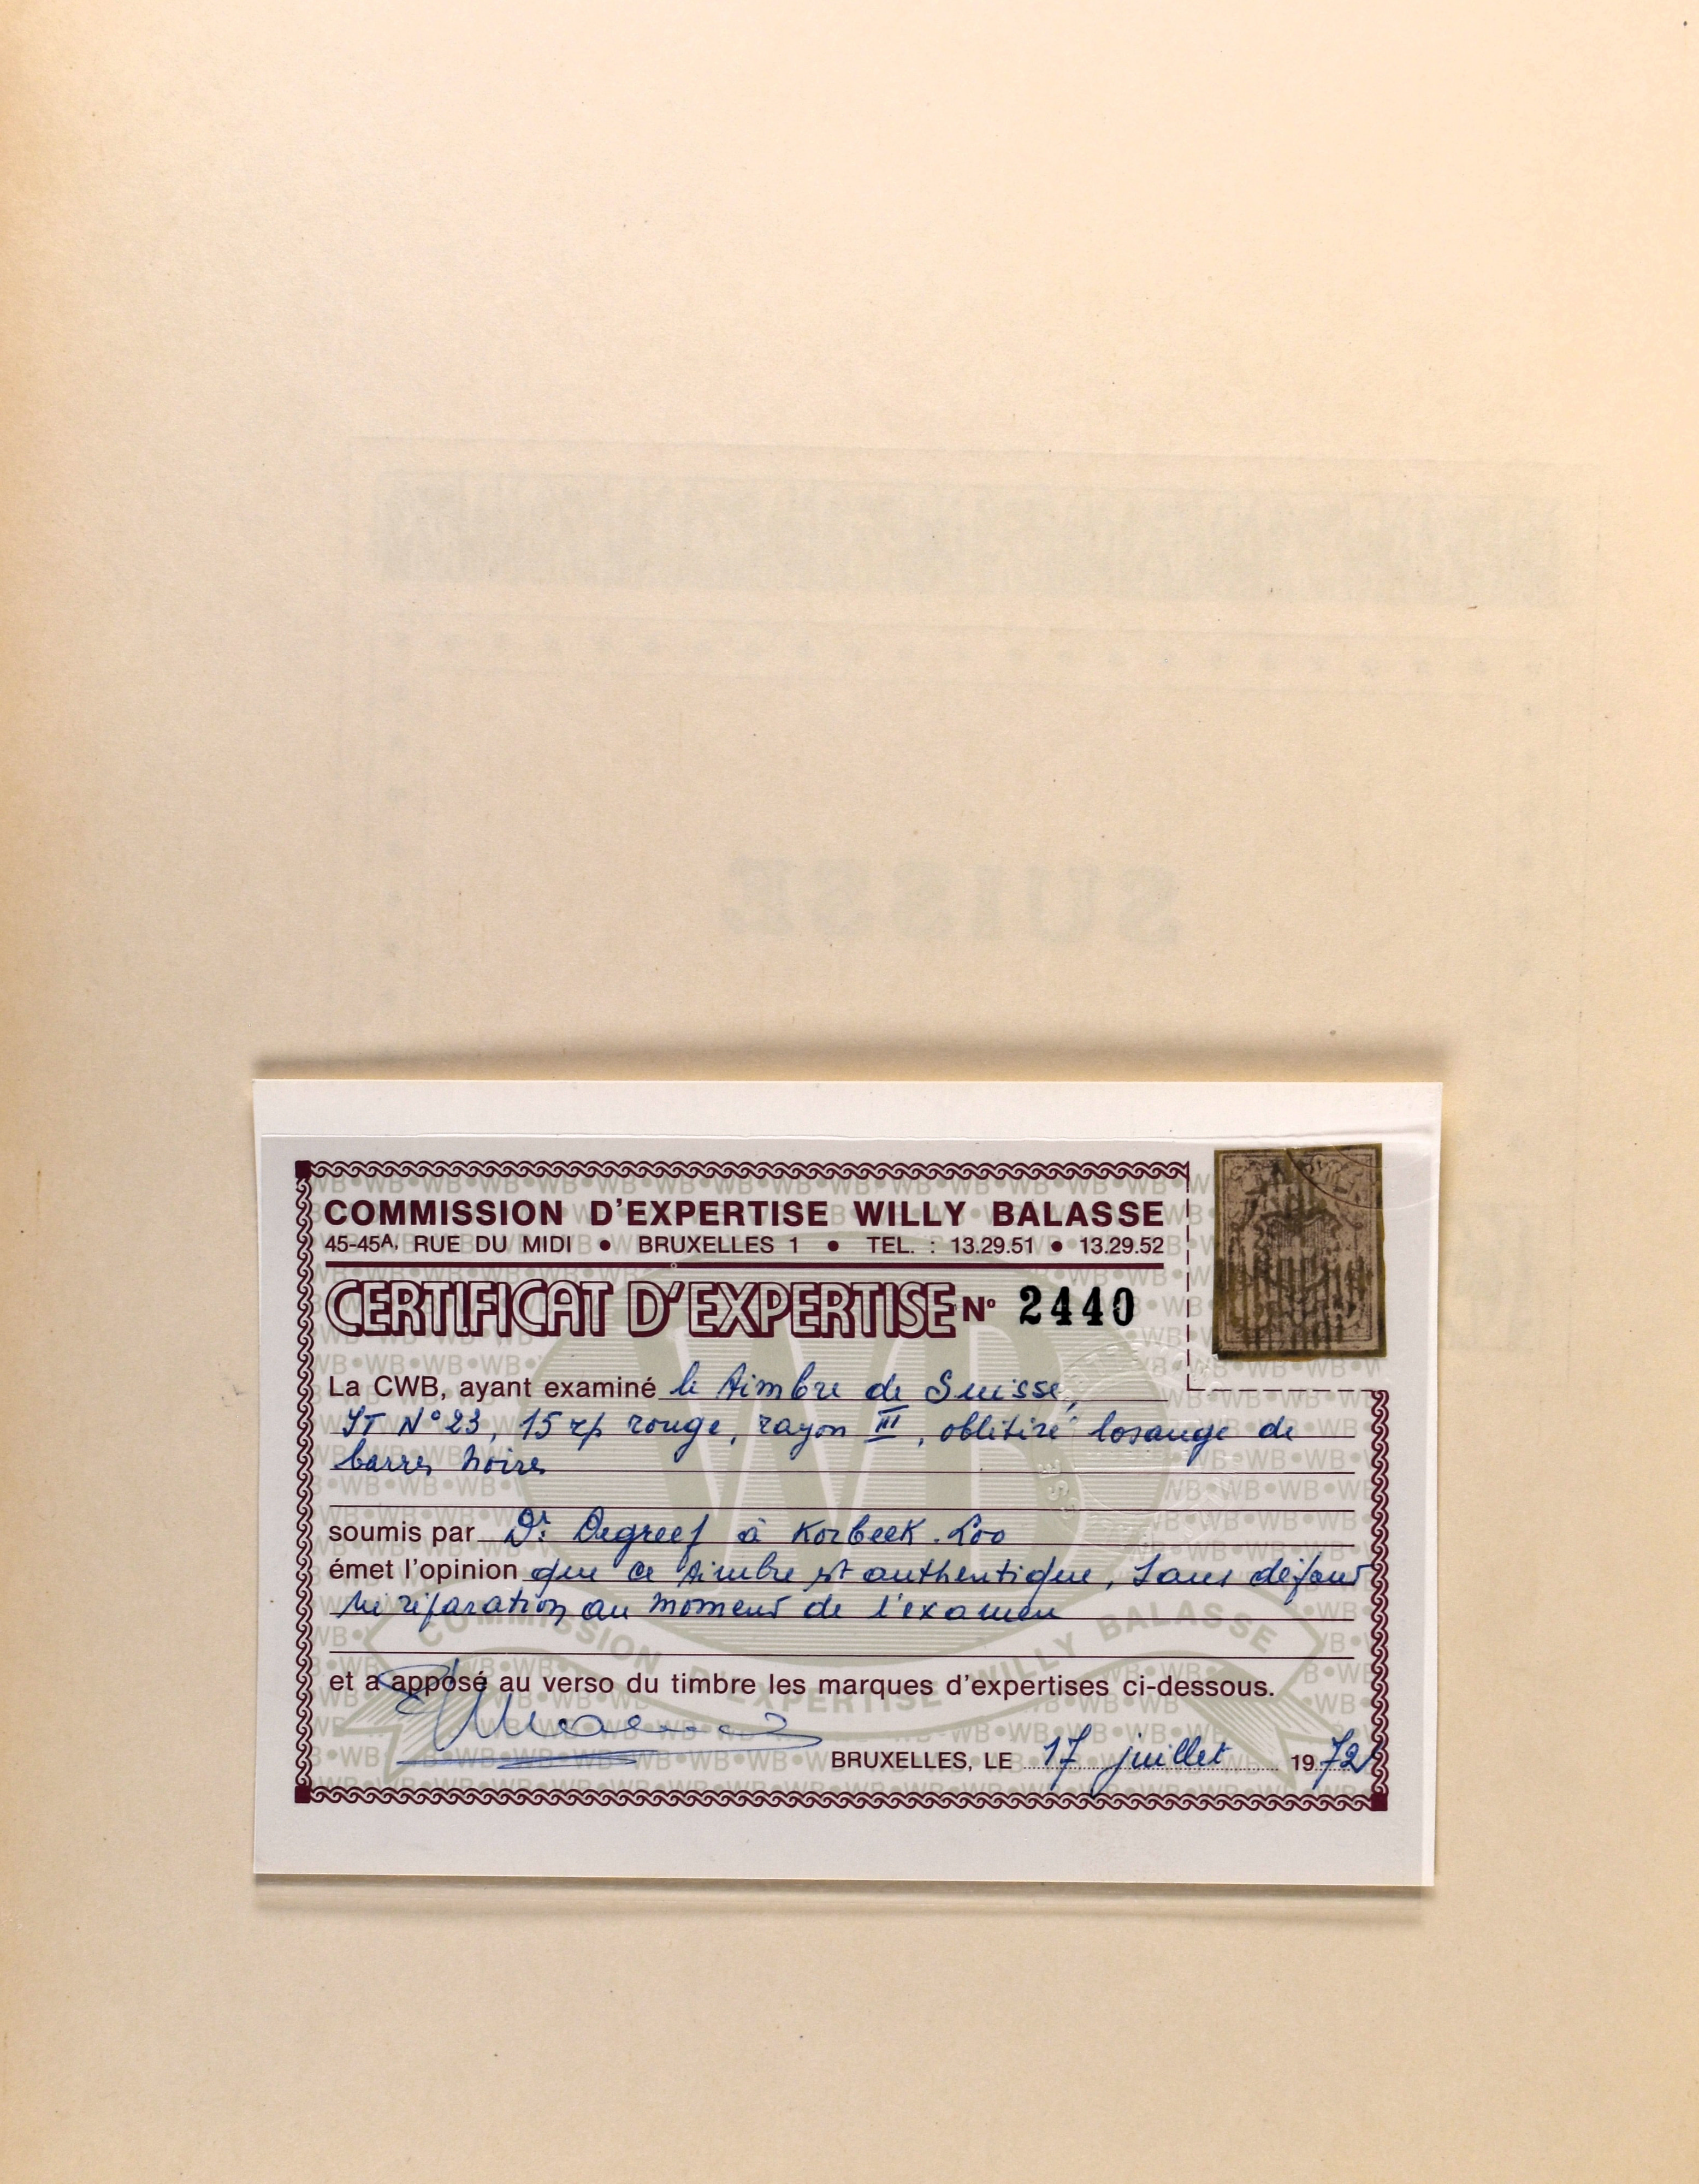 SUISSE
COMMISSION D'EXPERTISE WILLY BALASSE
45-45A, RUE DU MIDI • BRUXELLES 1 • TEL. : 13.29.51 • 13.29.52
CERTIFICAT D'EXPERTISE No 2440
La CWB, ayant examiné le timbre de Suisse,
YT N° 23, 15 rp rouge, rayon III, oblitéré losange de
barres noires
soumis par Dr Degreef à Korbeek-Loo
émet l'opinion que ce timbre est authentique, sans défaut
ni réparation au moment de l'examen
et a apposé au verso du timbre les marques d'expertises ci-dessous.
BRUXELLES, LE 17 juillet 1972
COMMISSION D'EXPERTISE WILLY BALASSE
WB